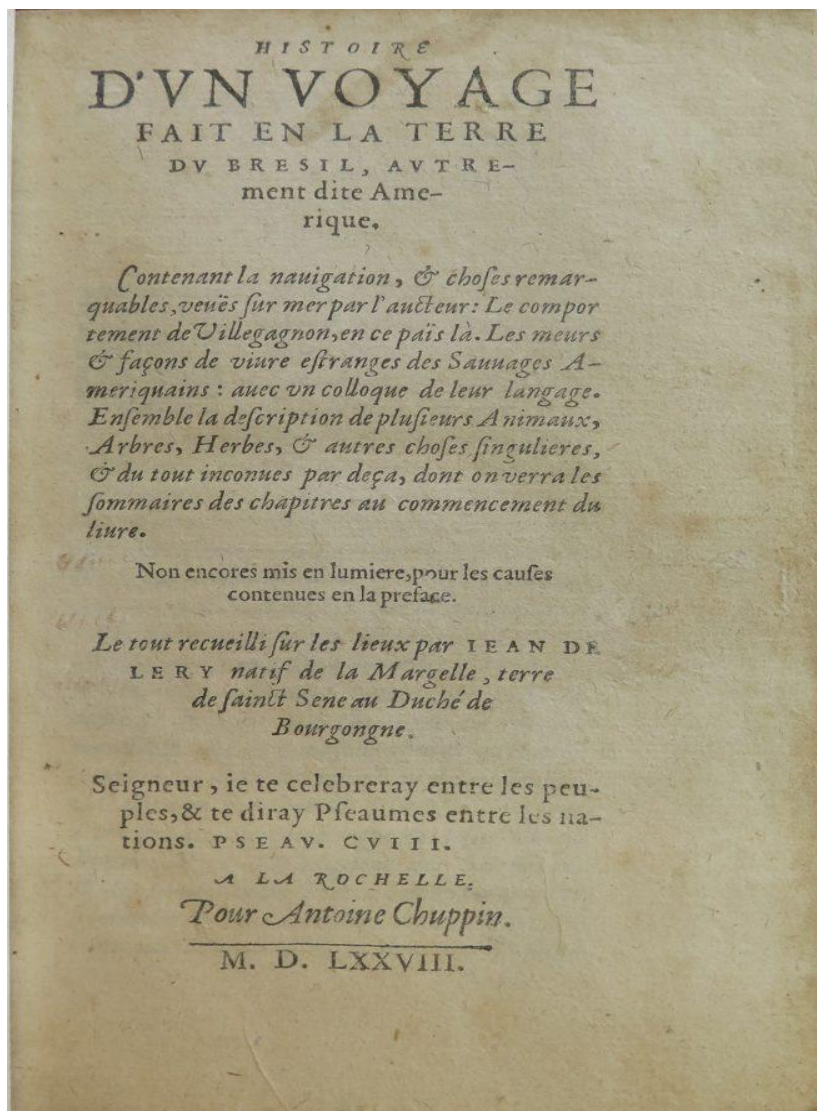 HISTOIRE
D'VN VOYAGE
FAIT EN LA TERRE
DV BRESIL, AVTRE-
ment dite Ame-
rique.
Contenant la nauigation, & choſes remar-
quables, veuës ſur mer par l'aucteur: Le compor
tement de Villegagnon, en ce païs là. Les meurs
& façons de viure eſtranges des Sauuages A-
meriquains: auec vn colloque de leur langage.
Enſemble la deſcription de pluſieurs Animaux,
Arbres, Herbes, & autres choſes ſingulieres,
& du tout inconues par deça, dont on verra les
ſommaires des chapitres au commencement du
liure.
Non encores mis en lumiere, pour les cauſes
contenues en la preface.
Le tout recueilli ſur les lieux par IEAN DE
LERY natif de la Margelle, terre
de ſainct Sene au Duché de
Bourgongne.
Seigneur, ie te celebreray entre les peu-
ples, & te diray Pſeaumes entre les na-
tions. PSEAV. CVIII.
A LA ROCHELLE.
Pour Antoine Chuppin.
M. D. LXXVIII.